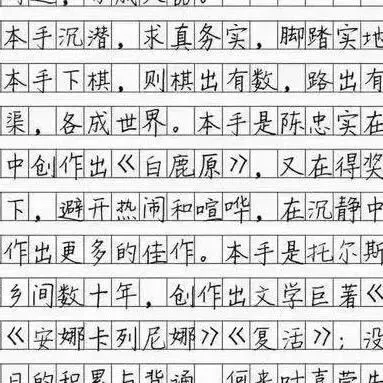 本手沉潜，求真务实，脚踏实地
本手下棋，则棋出有数，路出有
渠，各成世界。本手是陈忠实在
中创作出《白鹿原》，又在得奖
下，避开热闹和喧哗，在沉静中
作出更多的佳作。本手是托尔斯
乡间数十年，创作出文学巨著《
《安娜卡列尼娜》《复活》；没
日的积累与背诵，何来叶嘉莹